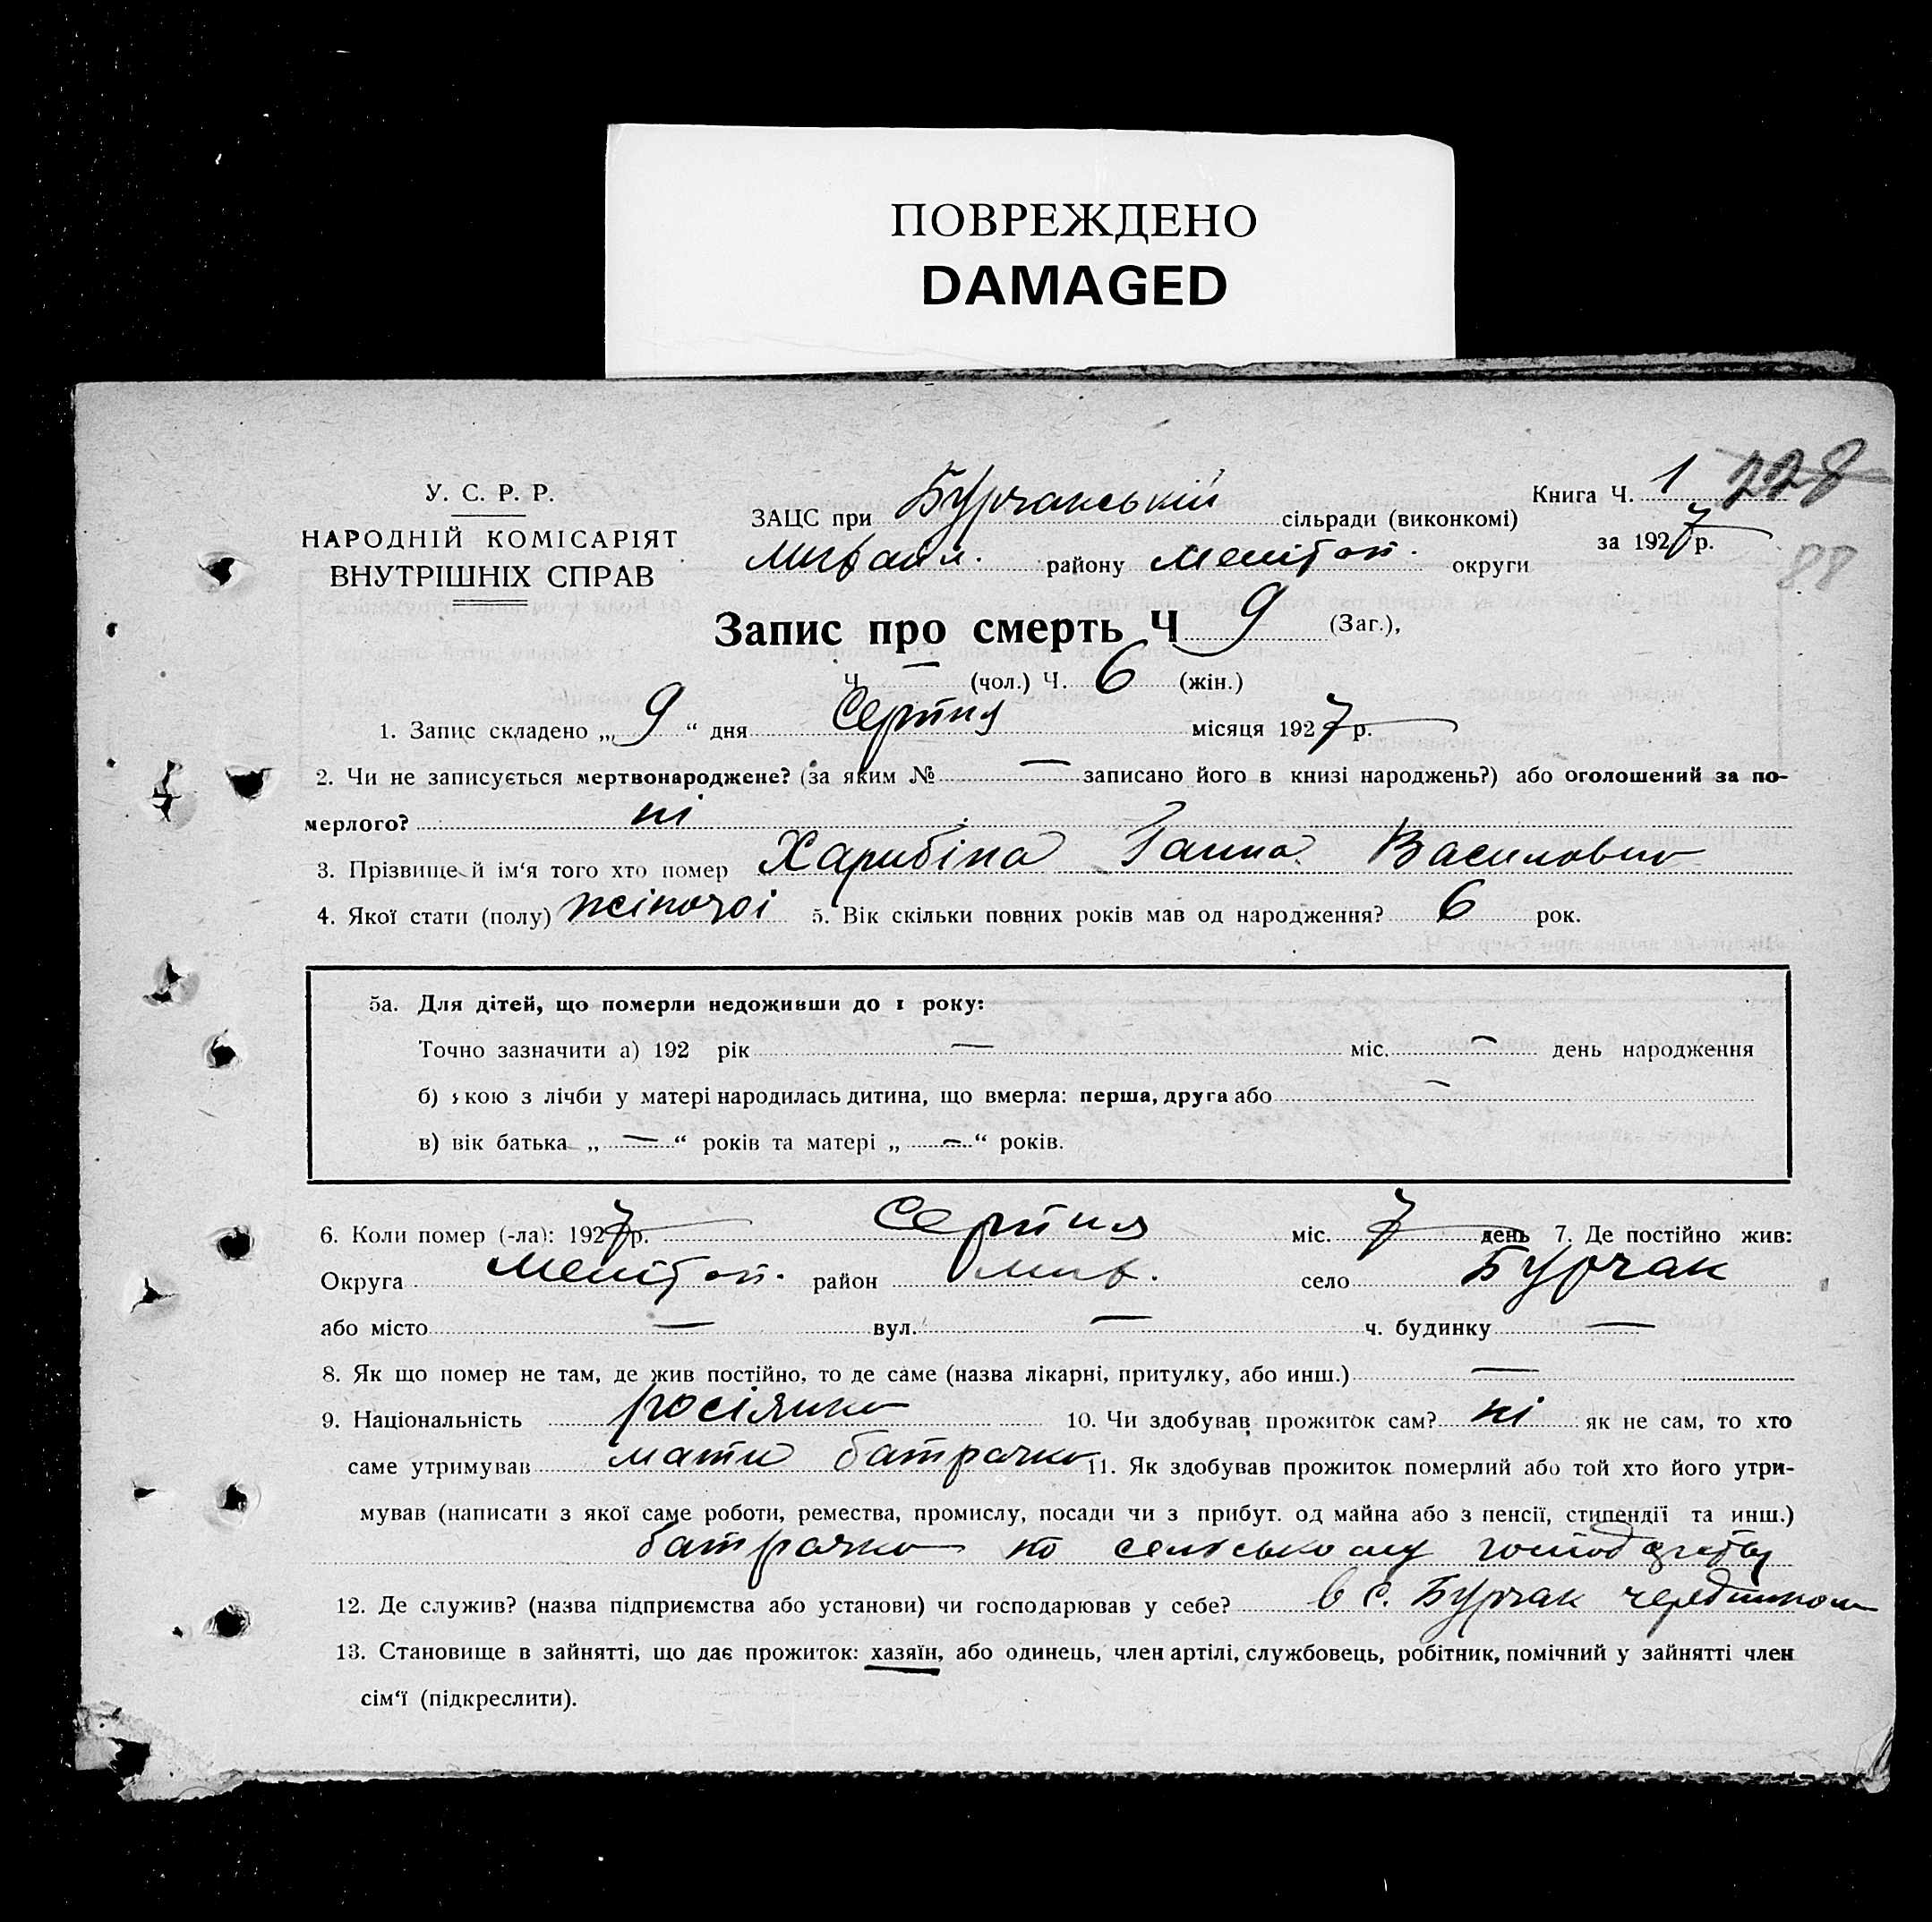 ПОВРЕЖДЕНО
DAMAGED
У. С. Р. Р.
НАРОДНІЙ КОМІСАРІЯТ
ВНУТРІШНІХ СПРАВ
Книга Ч. 1 228
за 1927 р.
88
ЗАЦС при Бурчанській сільради (виконкомі)
району Мелітоп. округи
Запис про смерть Ч 9 (Заг.),
Ч — (чол.) Ч. 6 (жін.)
1. Запис складено „ 9 “ дня Серпня місяця 1927 р.
2. Чи не записується мертвонароджене? (за яким № — записано його в книзі народжень?) або оголошений за по-
мерлого? ні
3. Прізвище й ім'я того хто помер Харибіна Ганна Василовна
4. Якої стати (полу) жіночоі 5. Вік скільки повних років мав од народження? 6 рок.
5а. Для дітей, що померли недоживши до 1 року:
Точно зазначити а) 192 рік — міс. — день народження
б) кою з лічби у матері народилась дитина, що вмерла: перша, друга або —
в) вік батька „ — “ років та матері „ — “ років.
6. Коли помер (-ла): 1927 р. Серпня міс. 7 день 7. Де постійно жив:
Округа Мелітоп. район село Бурчак
або місто — вул. — ч. будинку —
8. Як що помер не там, де жив постійно, то де саме (назва лікарні, притулку, або инш.) —
9. Національність росіянка 10. Чи здобував прожиток сам? ні як не сам, то хто
саме утримував мати батрачка 11. Як здобував прожиток померлий або той хто його утри-
мував (написати з якої саме роботи, ремества, промислу, посади чи з прибут. од майна або з пенсії, стипендії та инш.)
батрачка по сельському
12. Де служив? (назва підприємства або установи) чи господарював у себе? в с. Бурчак
13. Становище в зайнятті, що дає прожиток: хазяїн, або одинець, член артілі, службовець, робітник, помічний у зайнятті член
сім'ї (підкреслити).